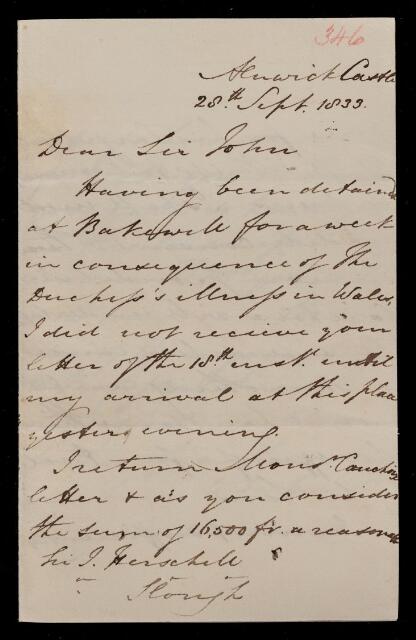 346
Alnwick Castle
28th Sept. 1833.
Dear Sir John
Having been detained
at Bakewell for a week
in consequence of The
Duchess's illness in Wales,
I did not recieve your
letter of the 18th inst. until
my arrival at this place
yester evening.
I return Monsr. Cauchoix
letter & as you consider
the sum of 16,500 fr. a reasonable
Sir J. Herschell
Slough